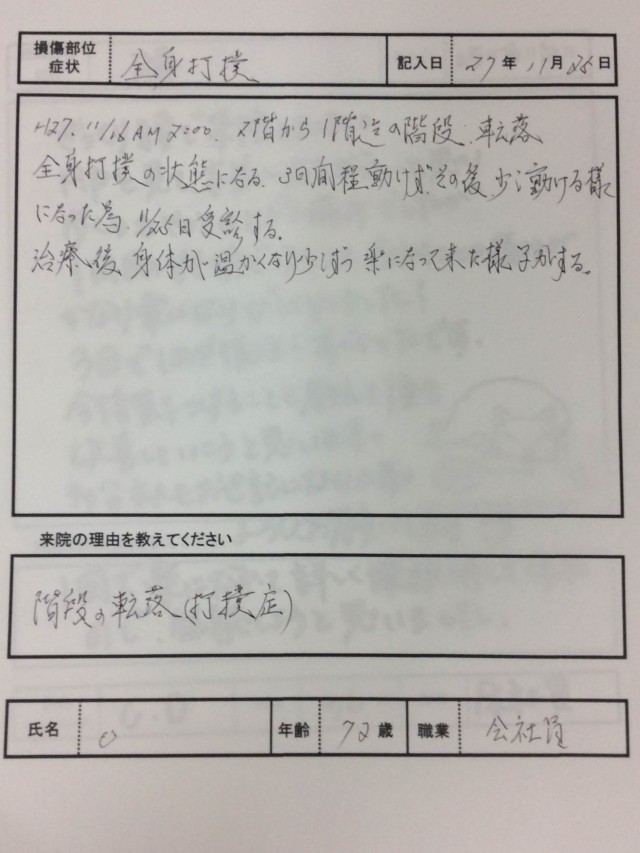 損傷部位
症状
全身打撲
記入日 27年 11月 25日
H27. 11/16 AM 2:00. 2階から1階迄の階段、転落
全身打撲の状態になる。3日間程動けず、その後少し動ける様
になった為、11/25日受診する。
治療後、身体が温かくなり少しずつ楽になって来た様子がする。
来院の理由を教えてください
階段の転落(打撲症)
氏名 O 年齢 72歳 職業 会社員